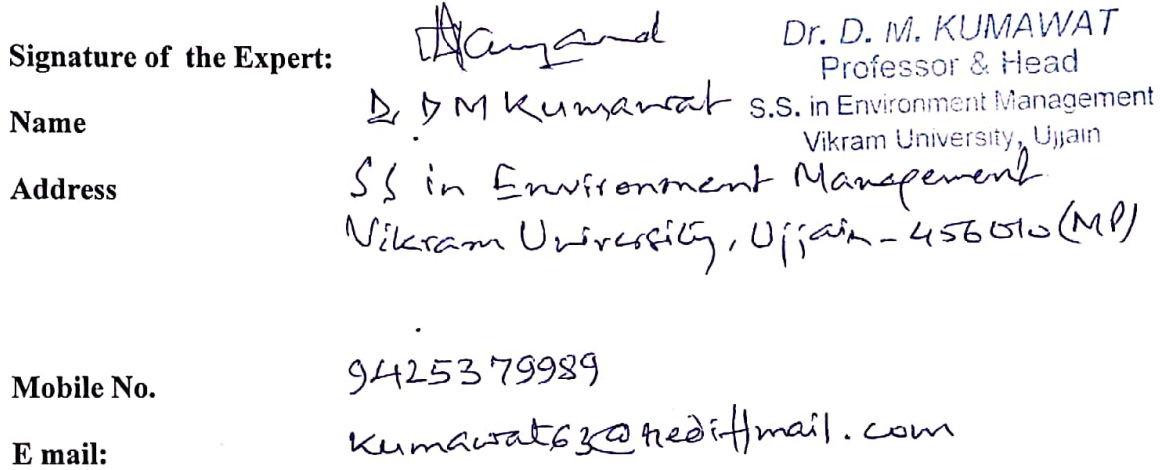 Signature of the Expert:
Dr. D. M. KUMAWAT
Professor & Head
S.S. in Environment Management
Vikram University, Ujjain
Name Dr D M Kumawat
Address SS in Environment Management
Vikram University, Ujjain - 456010 (MP)
Mobile No. 9425379989
E mail: kumawat63@rediffmail.com